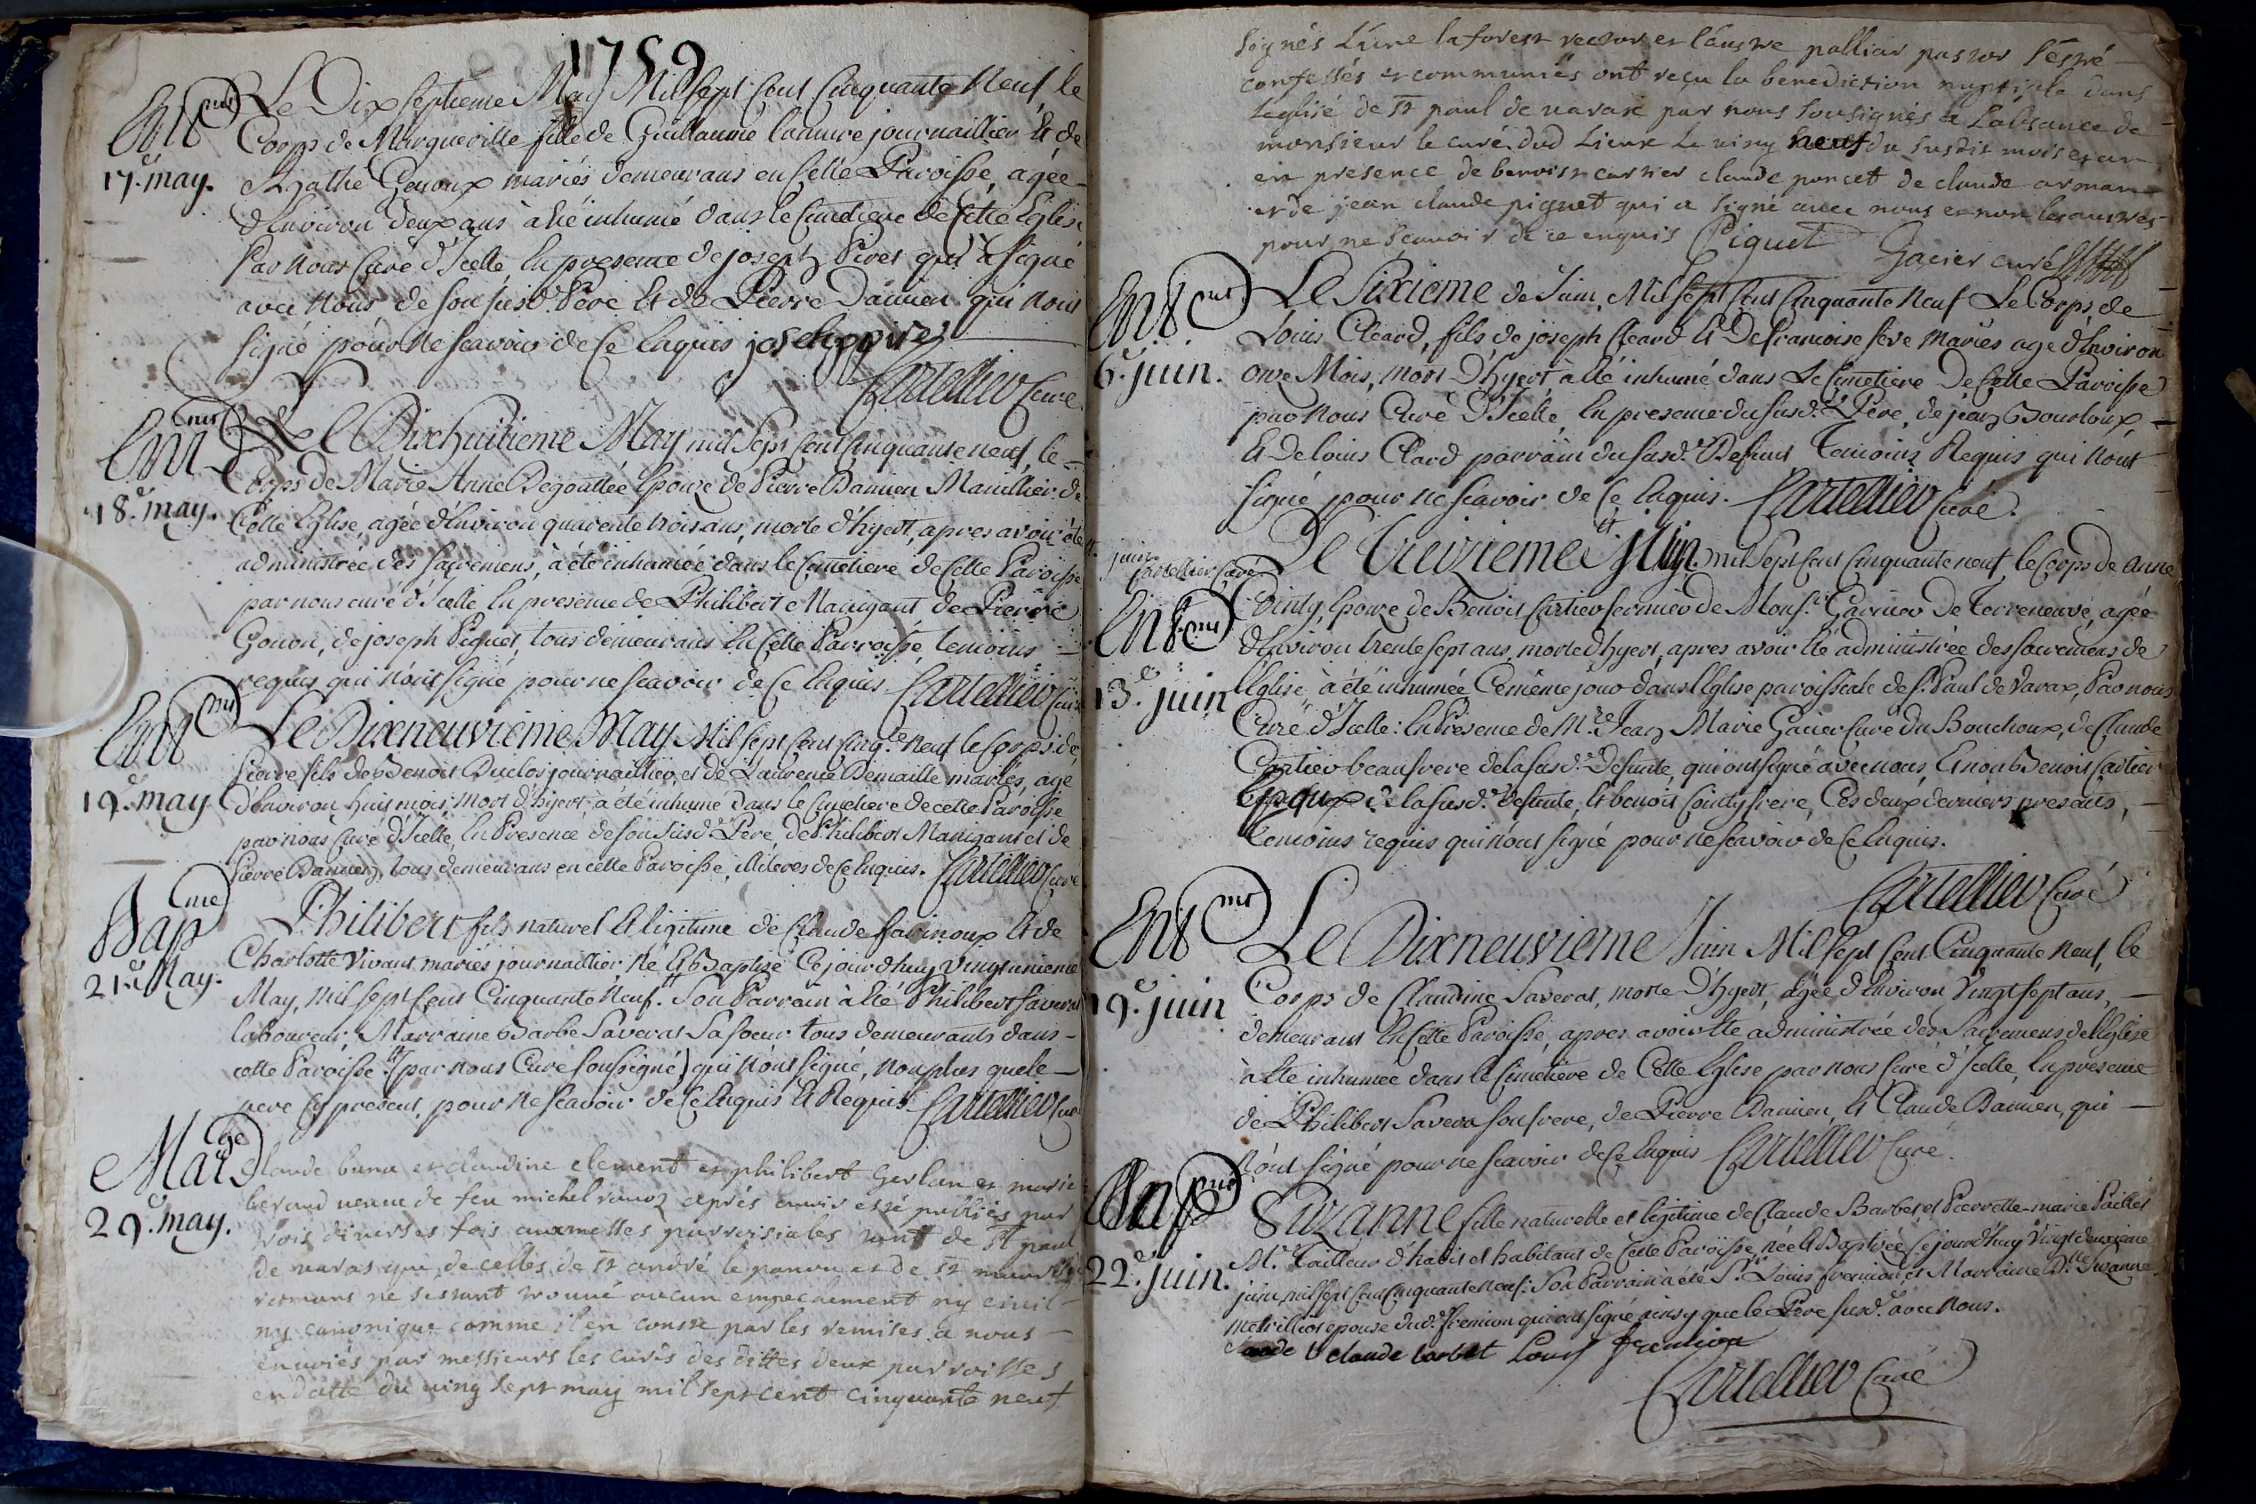 1759
Ent.mt
17.e may.
Le Dix septieme May Mil sept Cent Cinquante Neuf, le
Corps de Margueritte fille de Guillaume journaillier Et de
Agathe Gonoux mariés demeurans en Cette Paroisse, agée
d'Environ deux ans à êté inhumé dans le Cimetiere de Cette Eglise
Par Nous Curé d'Icelle, En presence de joseph Piret qui à signé
avec Nous, de son susd. Pere Et de Pierre Dannen qui n'ont
signé pour Ne scavoir de Ce Enquis joseph pires
Cartellier Curé
Ent.mt
18.e may.
Le Dixhuitieme May mil Sept Cent Cinquante neuf, le
Corps de Marie Anne Degouttée Epouze de Pierre Dannen Marillier de
Cette Eglise, agée d'Environ quarente trois ans, morte d'hyert, apres avoir été
administrée des sacremens, à été inhumée dans le Cimetiere de Cette Paroisse
par nous curé d'Icelle En presence de Philibert Manigant de Pierre
Gonon, de joseph Piquet, tous demeurans En Cette Parroisse, temoins
requis qui n'ont signé pour ne scavoir de Ce Enquis Cartellier Curé
Ent.mt
19.e may
Le Dixneuvieme May Mil sept Cent Cinq.te Neuf le Corps de
Pierre fils de Benoit Duclos journaillier, et de Laurence Demaille mariés, agé
d'Environ huit mois, Mort d'hyert à été inhumé Dans le Cimetiere de cette Paroisse
par nous Curé d'Icelle, En Presence de son Susd. Pere, de Philibert Manigant et de
Pierre Dannen, tous demeurans en cette Paroisse, illiteres de Ce Enquis. Cartellier Curé
Bap.me
21.e May.
Philibert fils naturel Et ligitime de Claude Et de
Charlotte Vivant mariés journaillier Né Et Baptisé Ce jourd'huy Vingt unieme
May, Mil sept Cent Cinquante Neuf. Son Parrain à êté Philibert Saverat
laboureur, Marraine Barbe Saverat Sa soeur tous demeurants dans
cette Paroisse (par nous Curé soussigné) qui n'ont signé, non plus que le
pere Cy present, pour Ne scavoir de Ce Enquis Et Requis Cartellier Curé
Mar.ge
29.e may.
Claude buna et claudine clement et philibert gerlan et marie
beraud veuve de feu michel ravoz aprés avoir esté publiés par
trois diverses fois aux messes parroisiales tant de St paul
de varas que de celles de St andré le panoux et de St
ne s'estant trouvé aucun empechement ny civil
ny canonique comme il en conste par les remises a nous
envoiés par messieurs les curés des dittes deux parroisses
en datte du ving sept may mil sept cent cinquante neuf
signés l'une laforest rector et l'austre pastor s'estré
confessés et communiés ont reçu la benediction nuptiale dans
leglise de St paul de varax par nous sousignés a l'absance de
monsieur le curé dud Lieux Le ving neuf du susdit mois et an
en presence de benoist cartier claude poncet de claude
et de jean claude piquet qui a signé avec nous et non les austres
pour ne scavoir de ce enquis Piquet Gacier curé
Ent.mt
6.e juin.
Le Sixieme de Juin, Mil sept Cent Cinquante Neuf Le Corps de
Louis Cleard, fils de joseph Cleard Et De francoise seve Mariés agé d'Environ
onze Mois, mort D'hyert à êté inhumé dans Le Cimetiere De Cette Paroisse
par Nous Curé D'Icelle, En presence du susd. Père, de jean Bourloux,
Et De louis Clard parrain du susd. Defunt Temoins Requis qui n'ont
signé pour ne scavoir de Ce Enquis. Cartellier Curé.
juin
Cartellier Curé
Ent.mt
13.e juin
Le treizieme juin. mil sept Cent Cinquante neuf le Corps de Anne
Cointy, Epouze de Benoit Cartier fermier de Mons.r Garnier De Terreneuve, agée
d'Environ trente sept ans, morte d'hyert, apres avoir êté administrée des sacremens de
l'Eglise à été inhumée Ce même jour dans l'Eglise paroissiale de St. Paul de Varax, Par nous
Curé d'Icelle: En Presence de M.re Jean Marie Gacier Curé du Bouchoux, de Claude
Cartier beau frere de la susd. Defunte, qui ont signé avec nous, Et non Benoit Cartier
Epoux de la susd. defunte, Et benoit Cointy frere, Ces deux derniers presents,
temoins requis qui n'ont signé pour Ne scavoir de Ce Enquis.
Cartellier Curé
Ent.mt
19.e juin
Le Dixneuvieme Juin Mil sept Cent Cinquante Neuf, le
Corps de Claudine Saverat, morte D'hyert, agée d'Environ Vingt sept ans,
demeurant En Cette Paroisse, apres avoir êté administrée des Sacremens de l'Eglise
à êté inhumée dans le Cimetiere de Cette Eglise par nous Curé d'Icelle, En presence
de Philibert Saverat son frere, de Pierre Dannen, Et Claude Dannen, qui
n'ont signé pour ne scavoir de Ce Enquis Cartellier Curé.
Bap.me
22.e juin.
Suzanne fille naturelle et légitime de Claude Barbet, et Pierrette marie Paillet
M.re Tailleur d'habit et habitant de Cette Paroisse, née Et Baptisée Ce jourd'huy Vingt deuxieme
juin, mil sept Cent Cinquante Neuf: Son Parrain à été S.r Louis fremion, et Marraine D.lle Suzanne
epouse dud. fremion qui ont signé ainsy que le Père susd. avec Nous.
claude barbet Louis fremion
Cartellier Curé